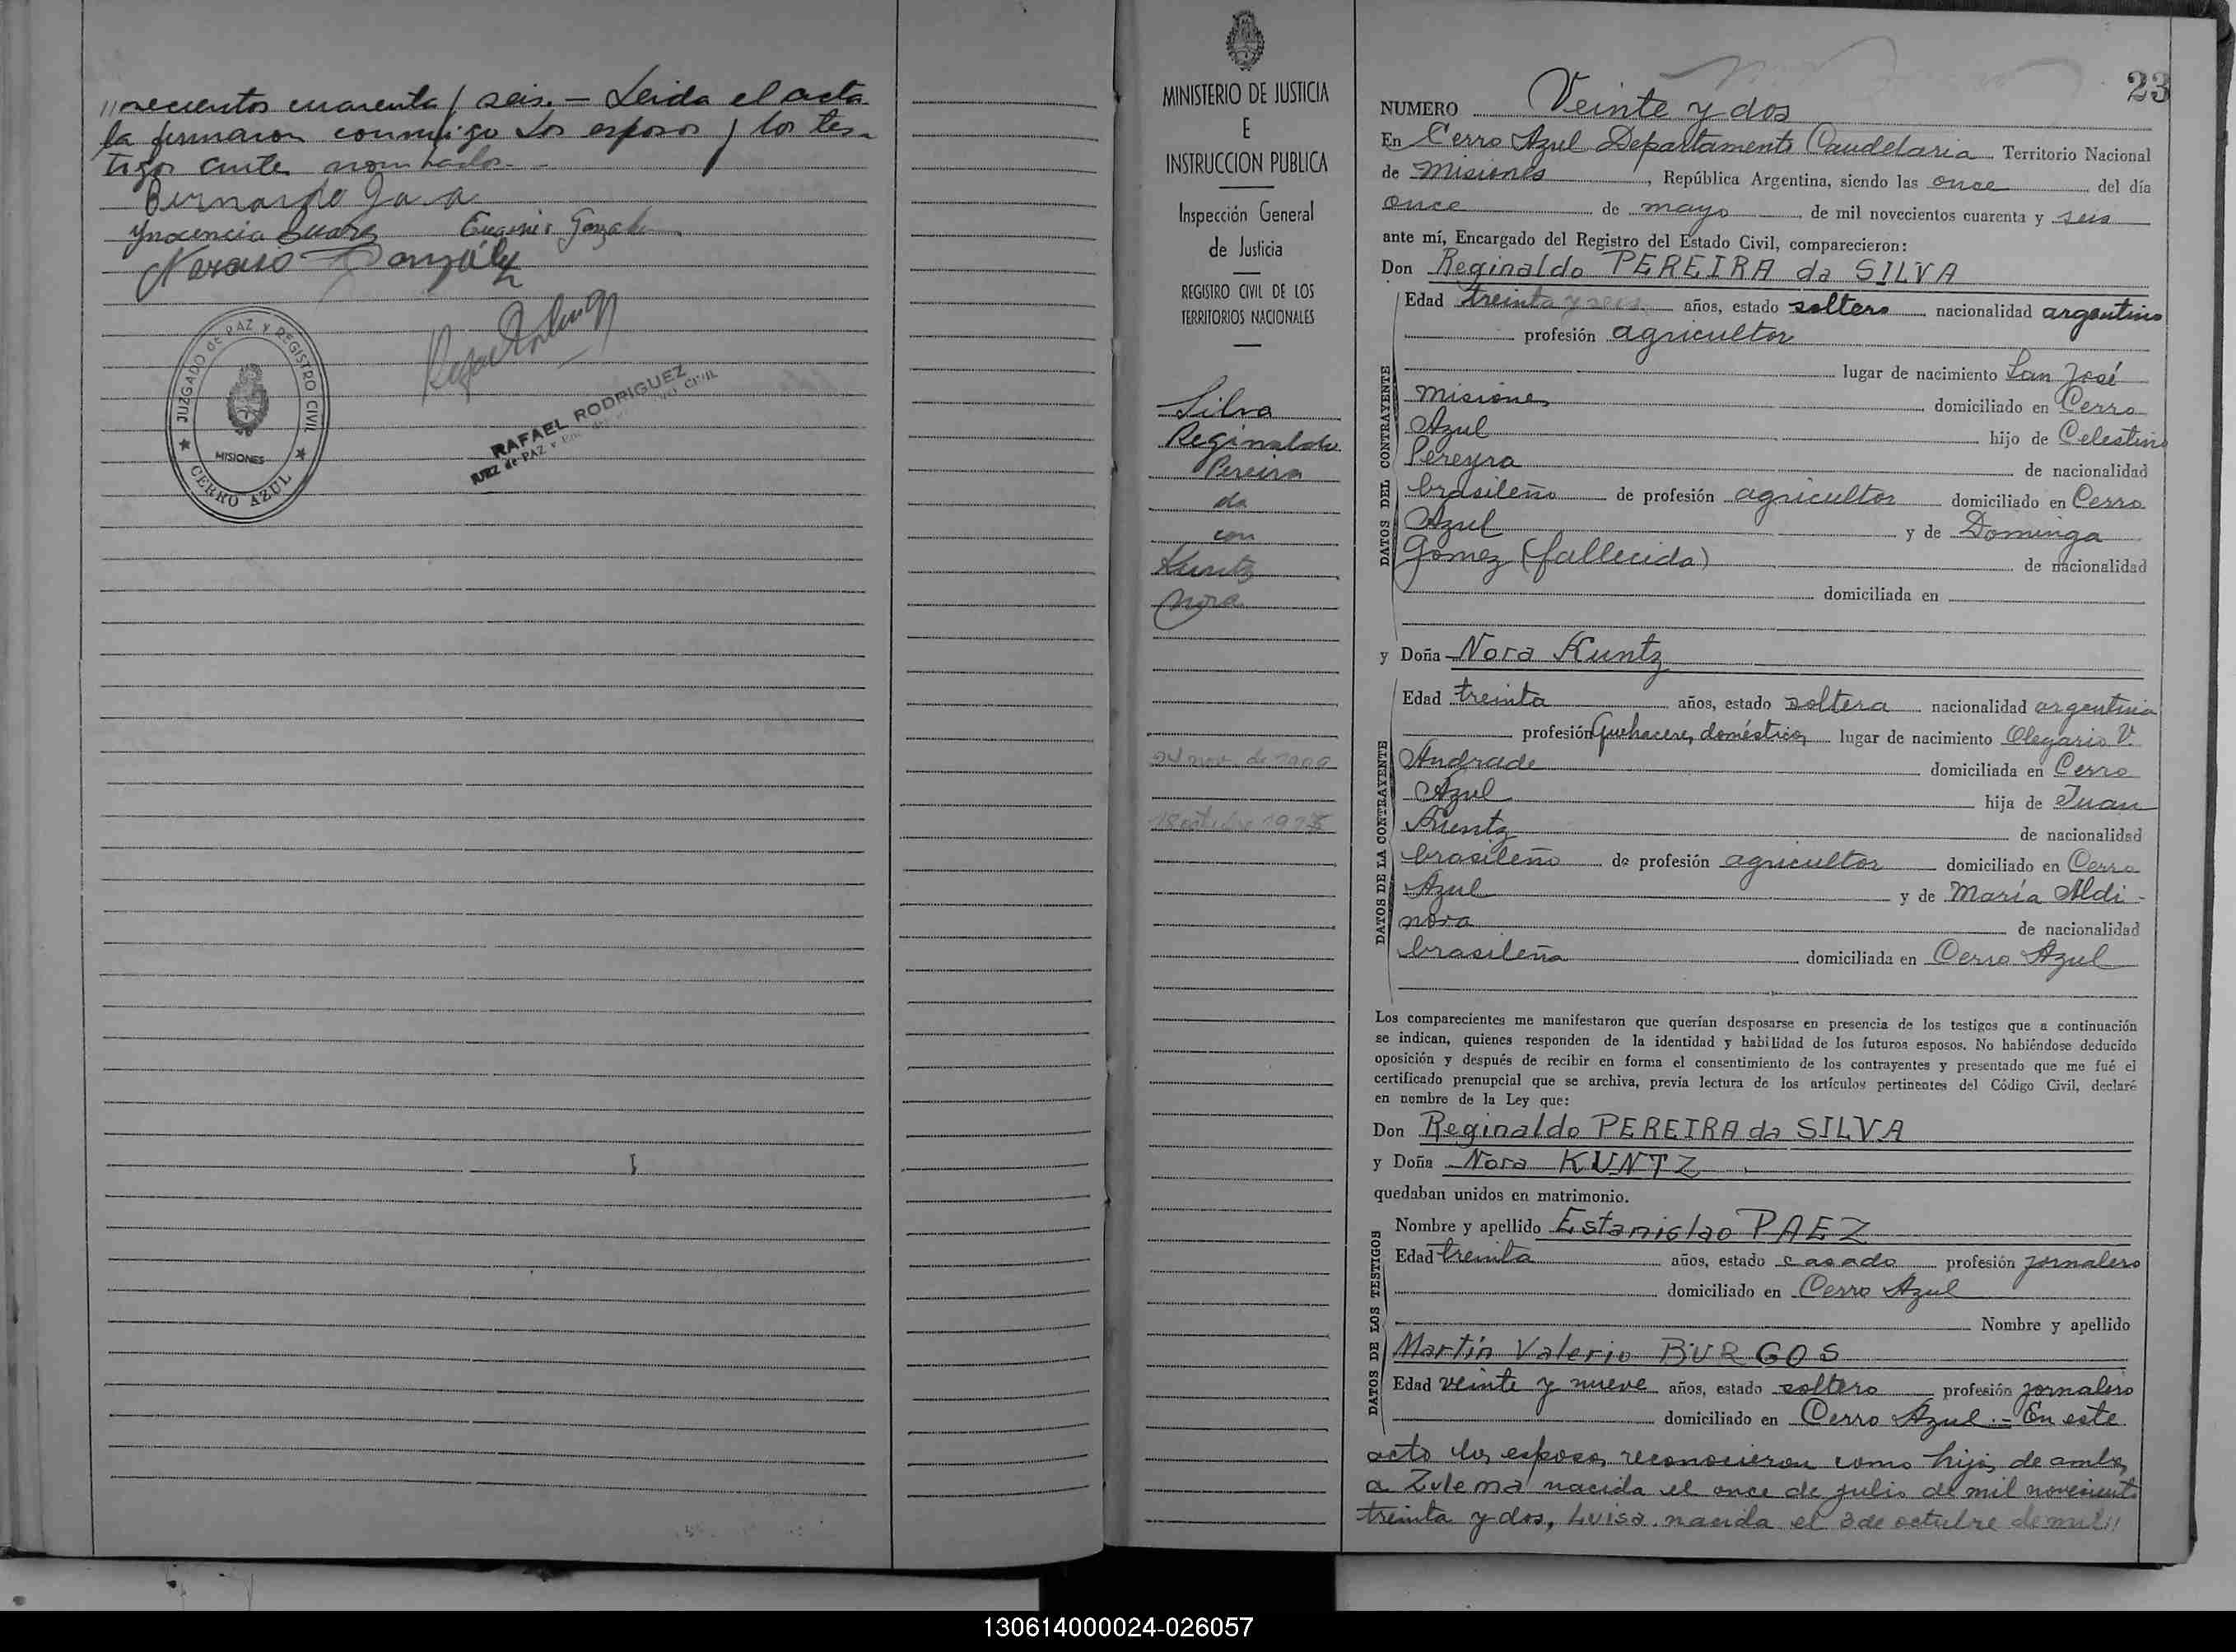 //vecientos cuarenta y seis. - Leida el acta
la firmaron conmigo los esposos y los tes-
tigos antes nombrados.-
Bernardo
Eugenio Gonzalez
González
JUZGADO de PAZ Y REGISTRO CIVIL
MISIONES
CERRO AZUL
RAFAEL RODRIGUEZ
JUEZ de PAZ
MINISTERIO DE JUSTICIA
E
INSTRUCCION PUBLICA
Inspección General
de Justicia
REGISTRO CIVIL DE LOS
TERRITORIOS NACIONALES
Silva
Reginaldo
Pereira
da
con
Kuntz
Nora
18 octubre 1975
23
NUMERO Veinte y dos
En Cerro Azul Departamento Candelaria Territorio Nacional
de Misiones, República Argentina, siendo las once del día
once de mayo de mil novecientos cuarenta y seis
ante mí, Encargado del Registro del Estado Civil, comparecieron:
Don Reginaldo PEREIRA da SILVA
DATOS DEL CONTRAYENTE
Edad treinta y seis años, estado soltero nacionalidad argentino
profesión agricultor
lugar de nacimiento San José
Misiones domiciliado en Cerro
Azul hijo de Celestino
Pereyra de nacionalidad
brasileño de profesión agricultor domiciliado en Cerro
Azul y de Dominga
Gómez (fallecida) de nacionalidad
domiciliada en
y Doña Nora Kuntz
DATOS DE LA CONTRAYENTE
Edad treinta años, estado soltera nacionalidad argentina
profesión Quehaceres domésticos lugar de nacimiento Olegario V.
Andrade domiciliada en Cerro
Azul hija de Juan
Kuntz de nacionalidad
brasileño de profesión agricultor domiciliado en Cerro
Azul y de María Aldi-
nora de nacionalidad
brasileña domiciliada en Cerro Azul
Los comparecientes me manifestaron que querían desposarse en presencia de los testigos que a continuación
se indican, quienes responden de la identidad y habilidad de los futuros esposos. No habiéndose deducido
oposición y después de recibir en forma el consentimiento de los contrayentes y presentado que me fué el
certificado prenupcial que se archiva, previa lectura de los artículos pertinentes del Código Civil, declaré
en nombre de la Ley que:
Don Reginaldo PEREIRA da SILVA
y Doña Nora KUNTZ
quedaban unidos en matrimonio.
DATOS DE LOS TESTIGOS
Nombre y apellido Estanislao PAEZ
Edad treinta años, estado casado profesión jornalero
domiciliado en Cerro Azul
Nombre y apellido
Martín Valerio BURGOS
Edad veinte y nueve años, estado soltero profesión jornalero
domiciliado en Cerro Azul.- En este
acto los esposos reconocieron como hijos de ambos
a Zulema nacida el once de julio de mil novecientos
treinta y dos, Luisa nacida el 3 de octubre de mil//
130614000024-026057